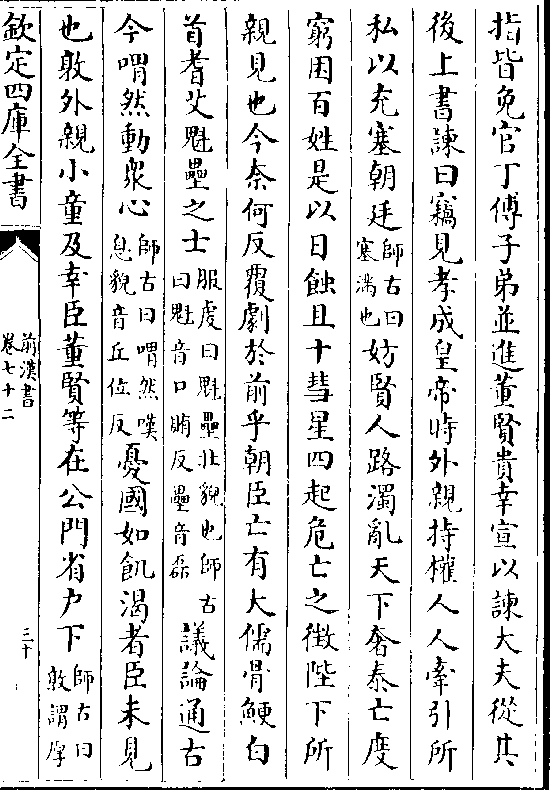 指皆免官丁傅子弟並進董賢貴幸宣以諫大夫從其
後上書諫曰竊見孝成皇帝時外親持權人人牽引所
私以充塞朝廷師古曰塞滿也妨賢人路濁亂天下奢泰亡度
窮困百姓是以日蝕且十彗星四起危亡之徵陛下所
親見也今奈何反覆劇於前乎朝臣亡有大儒骨鯁白
首耆艾魁壘之士服虔曰魁壘壯貌也師古曰魁音口賄反壘音磊議論通古
今喟然動衆心師古曰喟然嘆息貌音丘位反憂國如飢渴者臣未見
也敦外親小童及幸臣董賢等在公門省户下師古曰敦謂厚
欽定四庫全書
前漢書
卷七十二
三十